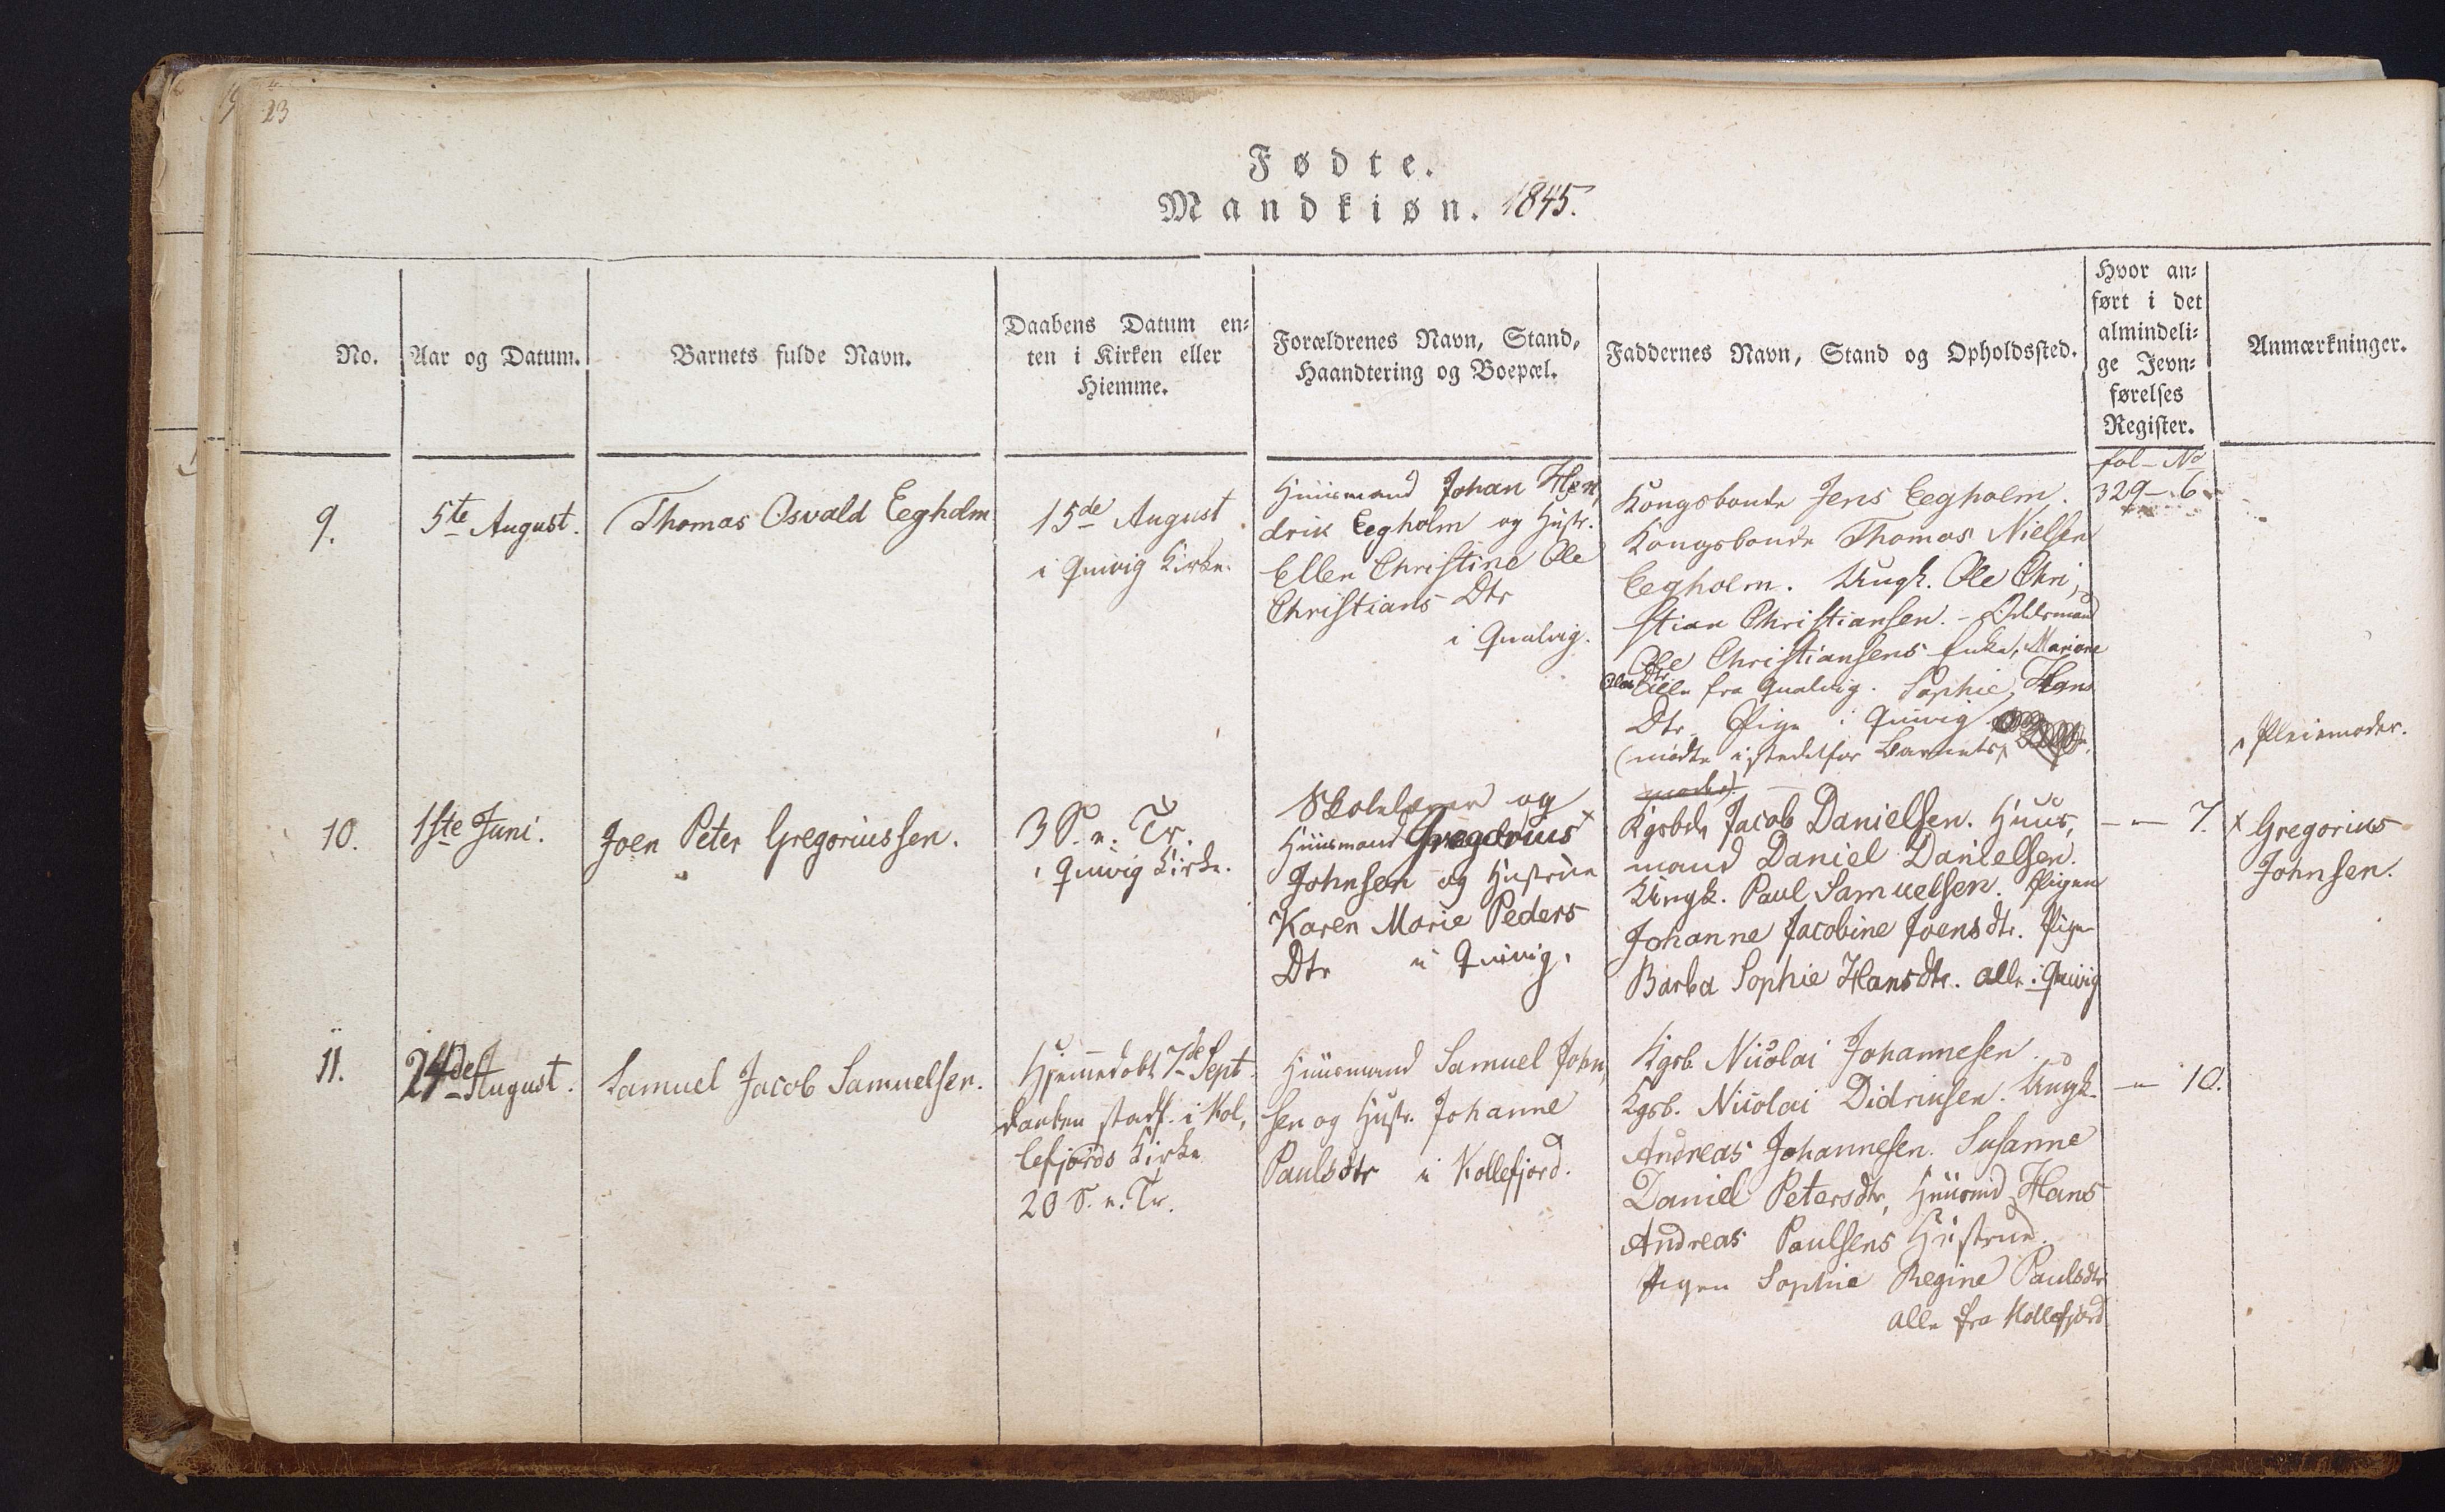 23
Fødte.
Mandkiøn. 1845.
No.
Aar og Datum.
Barnets fulde Navn.
Daabens Datum en-
ten i Kirken eller
Hiemme.
Forældrenes Navn, Stand,
Haandtering og Boepæl.
Faddernes Navn, Stand og Opholdssted.
Hvor an-
ført i det
almindeli-
ge Jevn-
førelses
Register.
Anmærkninger.
9.
5te August.
Thomas Osvald Eegholm
15de August
i Qvivig Kirke.
Huusmand Johan Hen,
drik Eegholm og Hustr.
Ellen Christine Ole
Christians Dtr
i Qvalvig.
Kongsbonde Jens Eegholm.
Kongsbonde Thomas Nielsen
Eegholm. Ungk. Ole Chri,
stian Christiansen. - Odelsmand
Ole Christiansens Enke, Mariane
Olesdtr. Alle fra Qvalvig. Sophie Hans
Dtr. Pige i Qvivig
(mødte istedetfor Barnets
moder).
fol - No
329 - 6.
Pleiemoder.
10.
1ste Juni.
Joen Peter Gregoriussen.
3 S. e. Tr.
i Qvivig Kirke.
Skolelærer og
Huusmand Gregorius x
Johnsen og Hustrue
Karen Marie Peders
Dtr i Qvivig.
Kgsbd. Jacob Danielsen. Huus,
mand Daniel Danielsen.
Ungk. Paul Samuelsen. Pigen
Johanne Jacobine Joensdtr. Pigen
Barba Sophie Hansdtr. alle i Qvivig
- - 7.
x Gregorius
Johnsen.
11.
24de August.
Samuel Jacob Samuelsen.
Hjemmedøbt 7de Sept.
Daaben stadf. i Kol,
lefjords Kirke
20 S. e. Tr.
Huusmand Samuel John,
sen og Hustr. Johanne
Paulsdtr i Kollefjord.
Kgsb. Nicolai Johannesen.
Kgsb. Nicolai Didriksen. Ungk.
Andreas Johannesen. Susanne
Daniel Petersdtr, Huusmd Hans
Andreas Paulsens Hustrue.
Pigen Sophie Regine Paulsdtr
alle fra Kollefjord
- - 10.